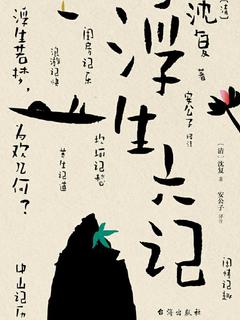 [清]
沈复 著
安公子 译注
浮生六记
闺房记乐
浪游记快
坎坷记愁
养生记道
浮生若梦,
为欢几何?
中山记历
闲情记趣
[清] 沈复 著
安公子 译注
台海出版社